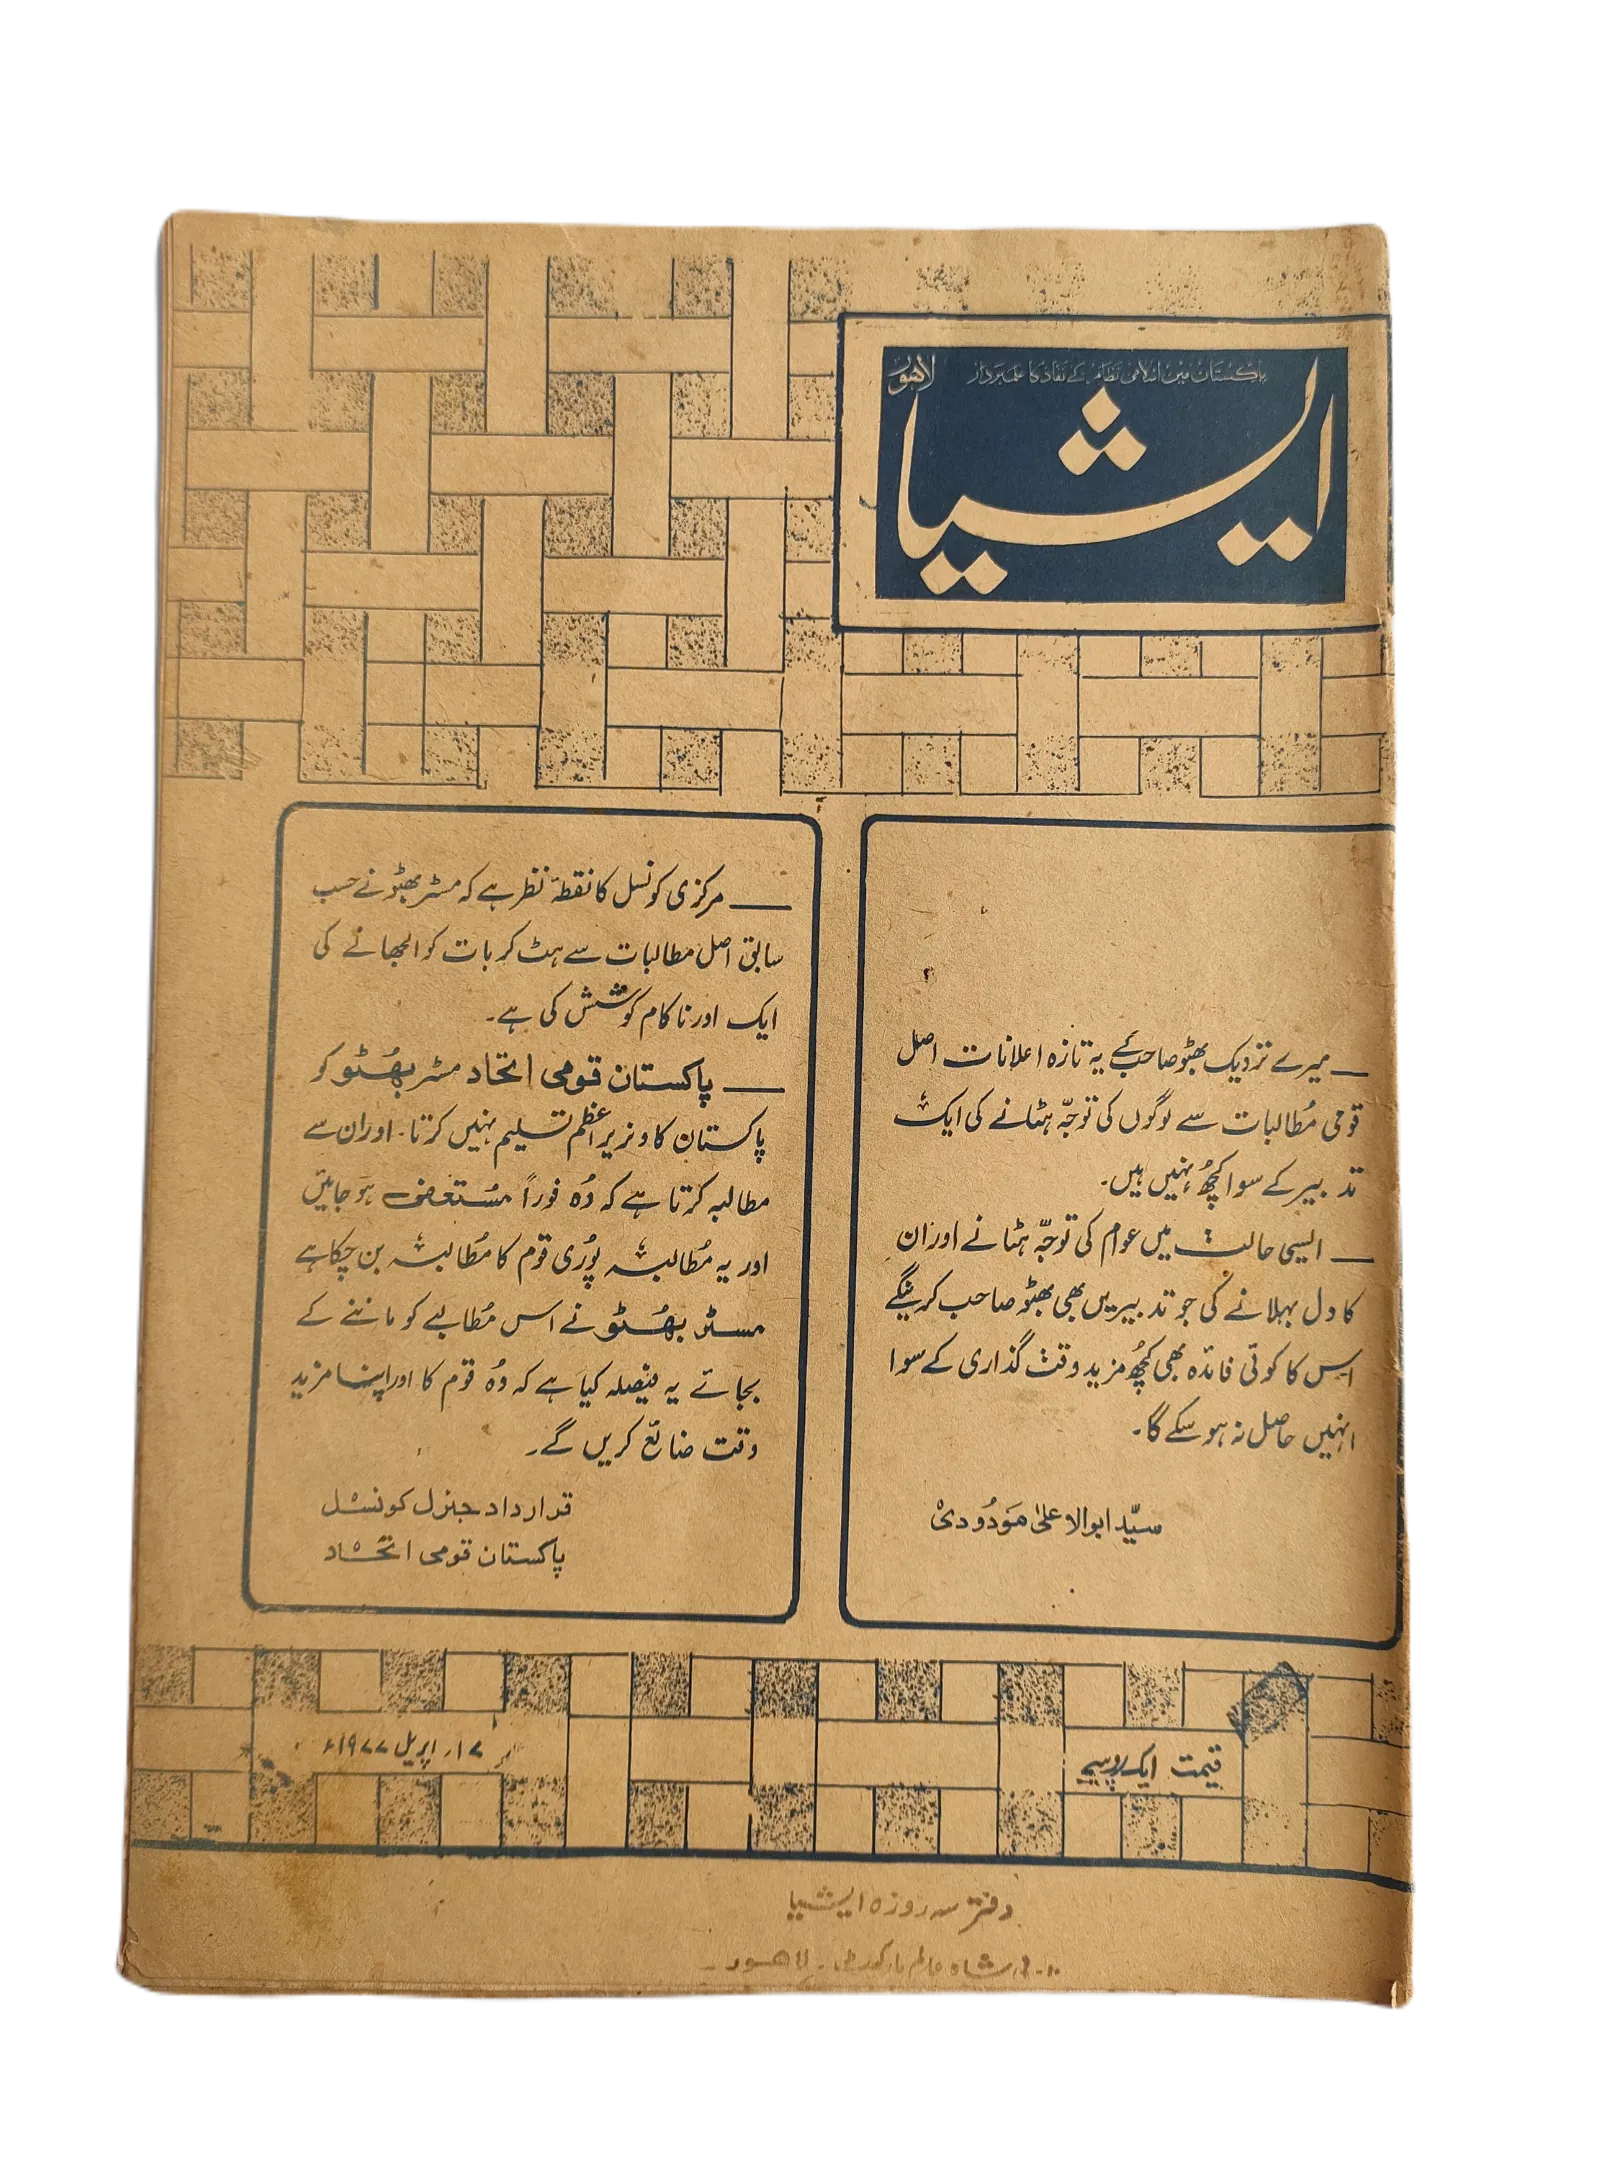 پاکستان میں اسلامی نظام کے نفاذ کا علمبردار
لاھور
ایشیا
— میرے نزدیک بھٹو صاحب کے یہ تازہ اعلانات اصل
قومی مُطالبات سے لوگوں کی توجّہ ہٹانے کی ایک
تدبیر کے سوا کچھُ نہیں ہیں۔
— ایسی حالت میں عوام کی توجّہ ہٹانے اور ان
کا دل بہلانے کی جو تدبیریں بھی بھٹو صاحب کرینگے
اس کا کوئی فائدہ بھی کچھُ مزید وقت گذاری کے سوا
انہیں حاصل نہ ہو سکے گا۔
سیّد ابوالاعلیٰ مَودُودی
— مرکزی کونسل کا نقطۂ نظر ہے کہ مسٹر بھٹو نے حسب
سابق اصل مطالبات سے ہٹ کر بات کو الجھانے کی
ایک اور ناکام کوشش کی ہے۔
— پاکستان قومی اتحاد مسٹر بھُٹو کو
پاکستان کا وزیر اعظم تسلیم نہیں کرتا۔ اور ان سے
مطالبہ کرتا ہے کہ وُہ فوراً مسُتعفی ہو جائیں
اور یہ مُطالبہ پوُری قوم کا مُطالبہ بن چکا ہے
مسٹر بھُٹو نے اس مُطالبے کو ماننے کے
بجائے یہ فیصلہ کیا ہے کہ وُہ قوم کا اور اپنا مزید
وقت ضائع کریں گے۔
قرارداد جنرل کونسل
پاکستان قومی اتحاد
قیمت ایک روپیہ
۱۷ اپریل ۱۹۷۷ء
دفتر سہ روزہ ایشیا
شاہ عالم مارکیٹ۔ لاھور۔